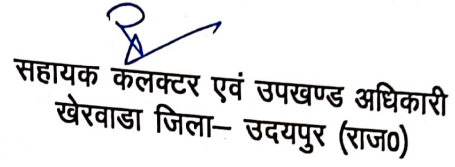 सहायक कलक्टर एवं उपखण्ड अधिकारी
खेरवाडा जिला– उदयपुर (राज0)